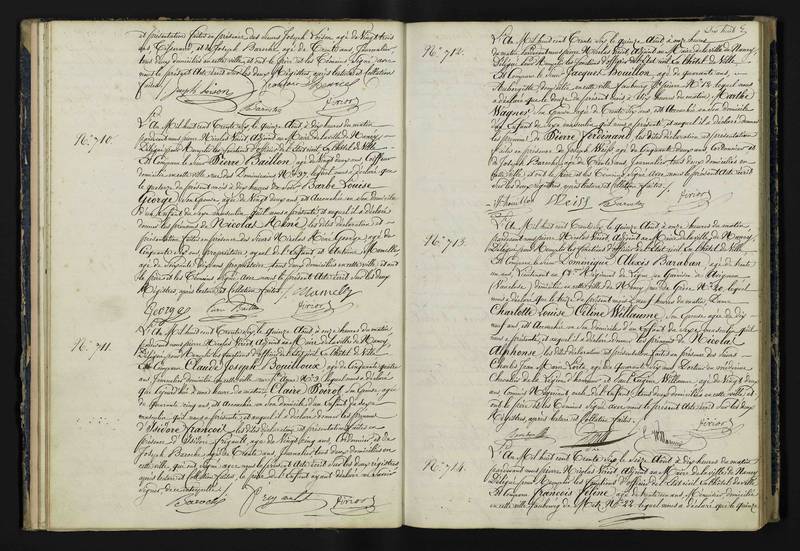 et présentation faites en présence des Sieurs Joseph Loison, agé de Vingt trois
ans, et de Joseph Baroche, agé de Trente ans, Journalier,
tous deux domiciliés en cette ville, et ont le père et les Témoins Signé avec
nous le présent Acte écrit sur les deux Régistres, après lecture et Collation
faites
Joseph Loison
Baroche
Viriot
N.° 710.
L'An Mil huit cent Trente Six, le quinze Août à dix heures du matin
pardevant nous pierre Nicolas Viriot, Adjoint au Maire de la ville de Nancy,
Délégué pour Remplir les fonctions d'officier de l'Etat civil, En l'hôtel de Ville
Est Comparu le Sieur Pierre Baillon, agé de Vingt deux ans, Coiffeur
domicilié en cette ville rue des Dominicains N.° 37, lequel nous a déclaré que
le quatorze du présent mois à dix heures du Soir Barbe Louise
George, Son Epouse, agée de Vingt deux ans, est Accouchée en Son domicile
d'un Enfant du Sexe masculin qu'il nous a présenté, et auquel il a déclaré
donner les prénoms de Nicolas René, les dites déclaration et
présentation faites en présence des Sieurs Nicolas René George, agé de
Cinquante Six ans, propriétaire, ayeul de l'Enfant et Antoine Mamelly
agé de Cinquante ans, propriétaire, tous deux domiciliés en cette ville, et ont
le père et les Témoins Signé avec nous le présent Acte écrit Sur les deux
Régistres, après lecture et Collation faites
Mamelly
George
Baillon
Viriot
N.° 711.
L'An Mil huit cent Trente Six, le quinze Août à onze heures du matin
pardevant nous pierre Nicolas Viriot, Adjoint au Maire de la ville de Nancy,
Délégué pour Remplir les fonctions d'officier de l'Etat civil, En l'hôtel de Ville
Est Comparu Claude Joseph Bouilloux, agé de Cinquante quatre
ans, Journalier domicilié en cette ville, rue N.° 3, lequel nous a déclaré
que à heures du matin, Claire Poirot, Son Epouse, agée
de Quarante cinq ans, est Accouchée en Son domicile d'un Enfant du Sexe
masculin, qu'il nous a présenté, et auquel il a déclaré donner les prénoms
d'Isidore françois, les dites déclaration et présentation faites en
présence d'Isidore Frégault, agé de Vingt cinq ans, Cordonnier et de
Joseph Baroche, agé de Trente ans, Journalier, tous deux domiciliés en
cette ville, qui ont Signé avec nous le présent Acte écrit Sur les deux régistres
après lecture et Collation faites, le père de l'Enfant ayant déclaré ne Savoir
Signer
Baroche
frégault
Viriot
N.° 712.
L'An Mil huit cent Trente Six, le quinze Août à onze heures
du matin, pardevant nous pierre Nicolas Viriot, Adjoint au Maire de la ville de Nancy,
Délégué pour Remplir les fonctions d'officier de l'Etat civil, En l'hôtel de Ville
Est Comparu le Sieur Jacques Bouillon, agé de quarante ans,
Aubergiste, domicilié en cette ville, faubourg St. pierre N.° 18, lequel nous
a déclaré que le douze du présent mois à dix heures du matin, Marthe
Wagner, Son Epouse, agée de Trente ans, est Accouchée en Son domicile
d'un Enfant du Sexe masculin, qu'il nous a présenté, et auquel il a déclaré donner
les prénoms de Pierre Ferdinand, les dites déclaration et présentation
faites en présence de Joseph Weiss, agé de Cinquante deux ans, Cordonnier et
de Joseph Baroche, agé de Trente ans, Journalier, tous deux domiciliés en
cette ville, et ont le père et les Témoins Signé avec nous le présent Acte écrit
Sur les deux régistres, après lecture et Collation faites
Bouillon
Weiss
Baroche
Viriot
N.° 713.
L'An Mil huit cent Trente Six, le quinze Août à onze heures du matin
pardevant nous pierre Nicolas Viriot, Adjoint au Maire de la ville de Nancy,
Délégué pour Remplir les fonctions d'officier de l'Etat civil, En l'hôtel de Ville
Est Comparu le Sieur Dominique Alexis Baraban, agé de Trente
un ans, Lieutenant au Régiment de Ligne, en Garnison à Avignon
(Vaucluse) domicilié en cette ville de Nancy, rue N.° 20, lequel
nous a déclaré que le treize du présent mois à neuf heures du matin, Dame
Charlotte Louise Céline Willaume, Son Epouse, agée de dix
neuf ans, est Accouchée en Son domicile d'un Enfant du Sexe masculin, qu'il
nous a présenté, et auquel il a déclaré donner les prénoms de Nicolas
Alphonse, les dites déclaration et présentation faites en présence des Sieurs
Charles Jean Marie agé de Quarante cinq ans, Docteur en médecine
Chevalier de la Légion d'honneur, et Paul Eugène Willaume, agé de Vingt deux
ans, Commis Négociant, oncle de l'Enfant, tous deux domiciliés en cette ville, et
ont le père et les Témoins Signé avec nous le présent Acte écrit Sur les deux
Régistres, après lecture et Collation faites
Willaume
Viriot
N.° 714.
L'An Mil huit cent Trente Six, le Seize Août à dix heures du matin
pardevant nous pierre Nicolas Viriot, Adjoint au Maire de la ville de Nancy
Délégué pour Remplir les fonctions d'officier de l'Etat civil, En l'hôtel de Ville
Est Comparu François Féline, agé de trente ans, Menuisier domicilié
en cette ville, faubourg de Metz N.° 22, lequel nous a déclaré que le quinze